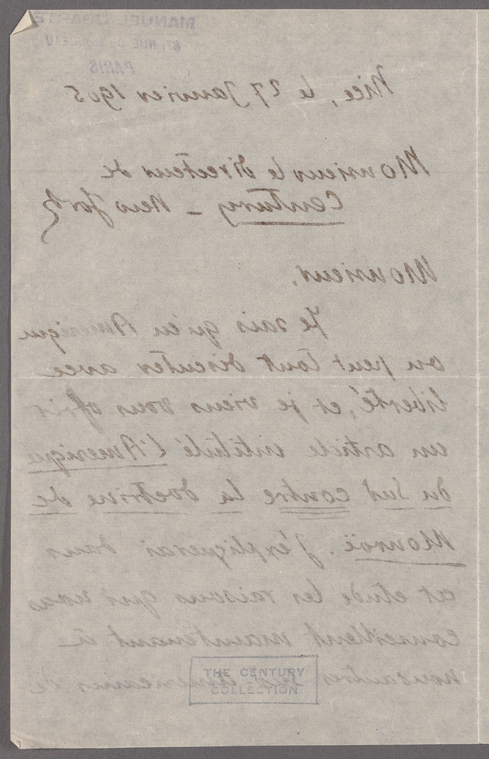 MANUEL UGARTE
PARIS
Nice, le 27 Janvier 1905
Monsieur le Directeur de
Century - New York
Monsieur,
Je sais qu'en Amérique
on peut tout discuter avec
liberté, et je viens vous offrir
un article intitulé l'Amérique
du Sud contre la doctrine de
Monroë. J'expliquerai dans
cet etude les raisons qui nous
conseillent maintenant à
THE CENTURY
COLLECTION